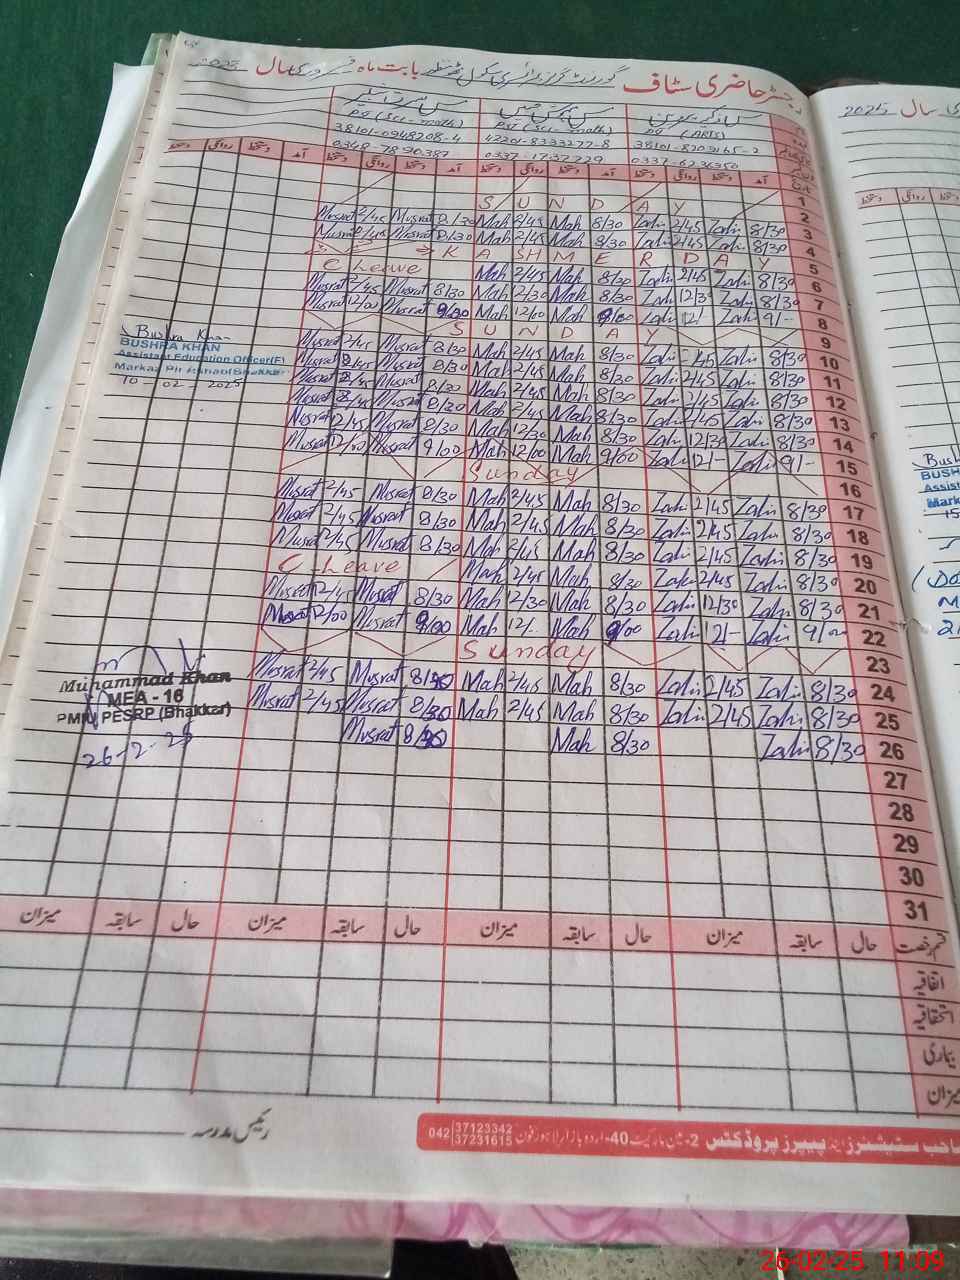 رجسٹر حاضری سٹاف گورنمنٹ گرلز پرائمری سکول بابت ماہ فروری سال 2025
PST (Sci-math) PST (Sci-math) PST (ARTS)
38101-0948208-4 42201-8333277-8 38101-8209165-2
0348-7890387 0337-1737229 0337-6236350
دستخط روانگی دستخط آمد دستخط روانگی دستخط آمد دستخط روانگی دستخط آمد
1
SUNDAY 2
Musrat 2/45 Musrat 8/30 Mah 2/45 Mah 8/30 Zahi 2/45 Zahi 8/30 3
Musrat 2/45 Musrat 8/30 Mah 2/45 Mah 8/30 Zahi 2/45 Zahi 8/30 4
KASHMER DAY 5
C Leave Mah 2/45 Mah 8/30 Zahi 2/45 Zahi 8/30 6
Musrat 2/45 Musrat 8/30 Mah 12/30 Mah 8/30 Zahi 12/30 Zahi 8/30 7
Musrat 12/00 Musrat 9/00 Mah 12/00 Mah 9/00 Zahi 12/- Zahi 9/- 8
SUNDAY 9
Musrat 2/45 Musrat 8/30 Mah 2/45 Mah 8/30 Zahi 2/45 Zahi 8/30 10
Musrat 2/45 Musrat 8/30 Mah 2/45 Mah 8/30 Zahi 2/45 Zahi 8/30 11
Musrat 2/45 Musrat 8/30 Mah 2/45 Mah 8/30 Zahi 2/45 Zahi 8/30 12
Musrat 2/45 Musrat 8/30 Mah 2/45 Mah 8/30 Zahi 2/45 Zahi 8/30 13
Musrat 12/45 Musrat 8/30 Mah 12/30 Mah 8/30 Zahi 12/30 Zahi 8/30 14
Musrat 12/00 Musrat 9/00 Mah 12/00 Mah 9/00 Zahi 12/- Zahi 9/- 15
Sunday 16
Musrat 2/45 Musrat 8/30 Mah 2/45 Mah 8/30 Zahi 2/45 Zahi 8/30 17
Musrat 2/45 Musrat 8/30 Mah 2/45 Mah 8/30 Zahi 2/45 Zahi 8/30 18
Musrat 2/45 Musrat 8/30 Mah 2/45 Mah 8/30 Zahi 2/45 Zahi 8/30 19
C-Leave Mah 2/45 Mah 8/30 Zahi 2/45 Zahi 8/30 20
Musrat 12/45 Musrat 8/30 Mah 12/30 Mah 8/30 Zahi 12/30 Zahi 8/30 21
Musrat 12/00 Musrat 9/00 Mah 12/- Mah 9/00 Zahi 12/- Zahi 9/00 22
Sunday 23
Musrat 2/45 Musrat 8/30 Mah 2/45 Mah 8/30 Zahi 2/45 Zahi 8/30 24
Musrat 2/45 Musrat 8/30 Mah 2/45 Mah 8/30 Zahi 2/45 Zahi 8/30 25
Musrat 8/30 Mah 8/30 Zahi 8/30 26
27
28
29
30
31
Bushra Khan
BUSHRA KHAN
Assistant Education Officer(F)
10-02-2025
Muhammad Khan
MEA - 16
PMIU PESRP (Bhakkar)
26-2-25
قسم رخصت حال سابقہ میزان حال سابقہ میزان حال سابقہ میزان حال سابقہ میزان
اتفاقیہ
استحقاقیہ
بیماری
میزان
رئیس مدرسہ
صاحب سٹیشنرز اینڈ پیپرز پروڈکٹس 2-مین مارکیٹ 40-اردو بازار لاہور فون 042 37123342 37231615
ی سال 2025
26-02-25 11:09